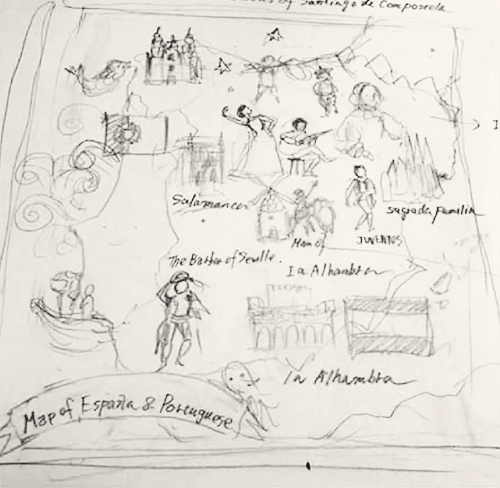 of Santiago de Composela
Salamanca
sagrada Familia
Man of
The Barber of Seville.
la Alhambra
la Alhambra
Map of España & Portuguese